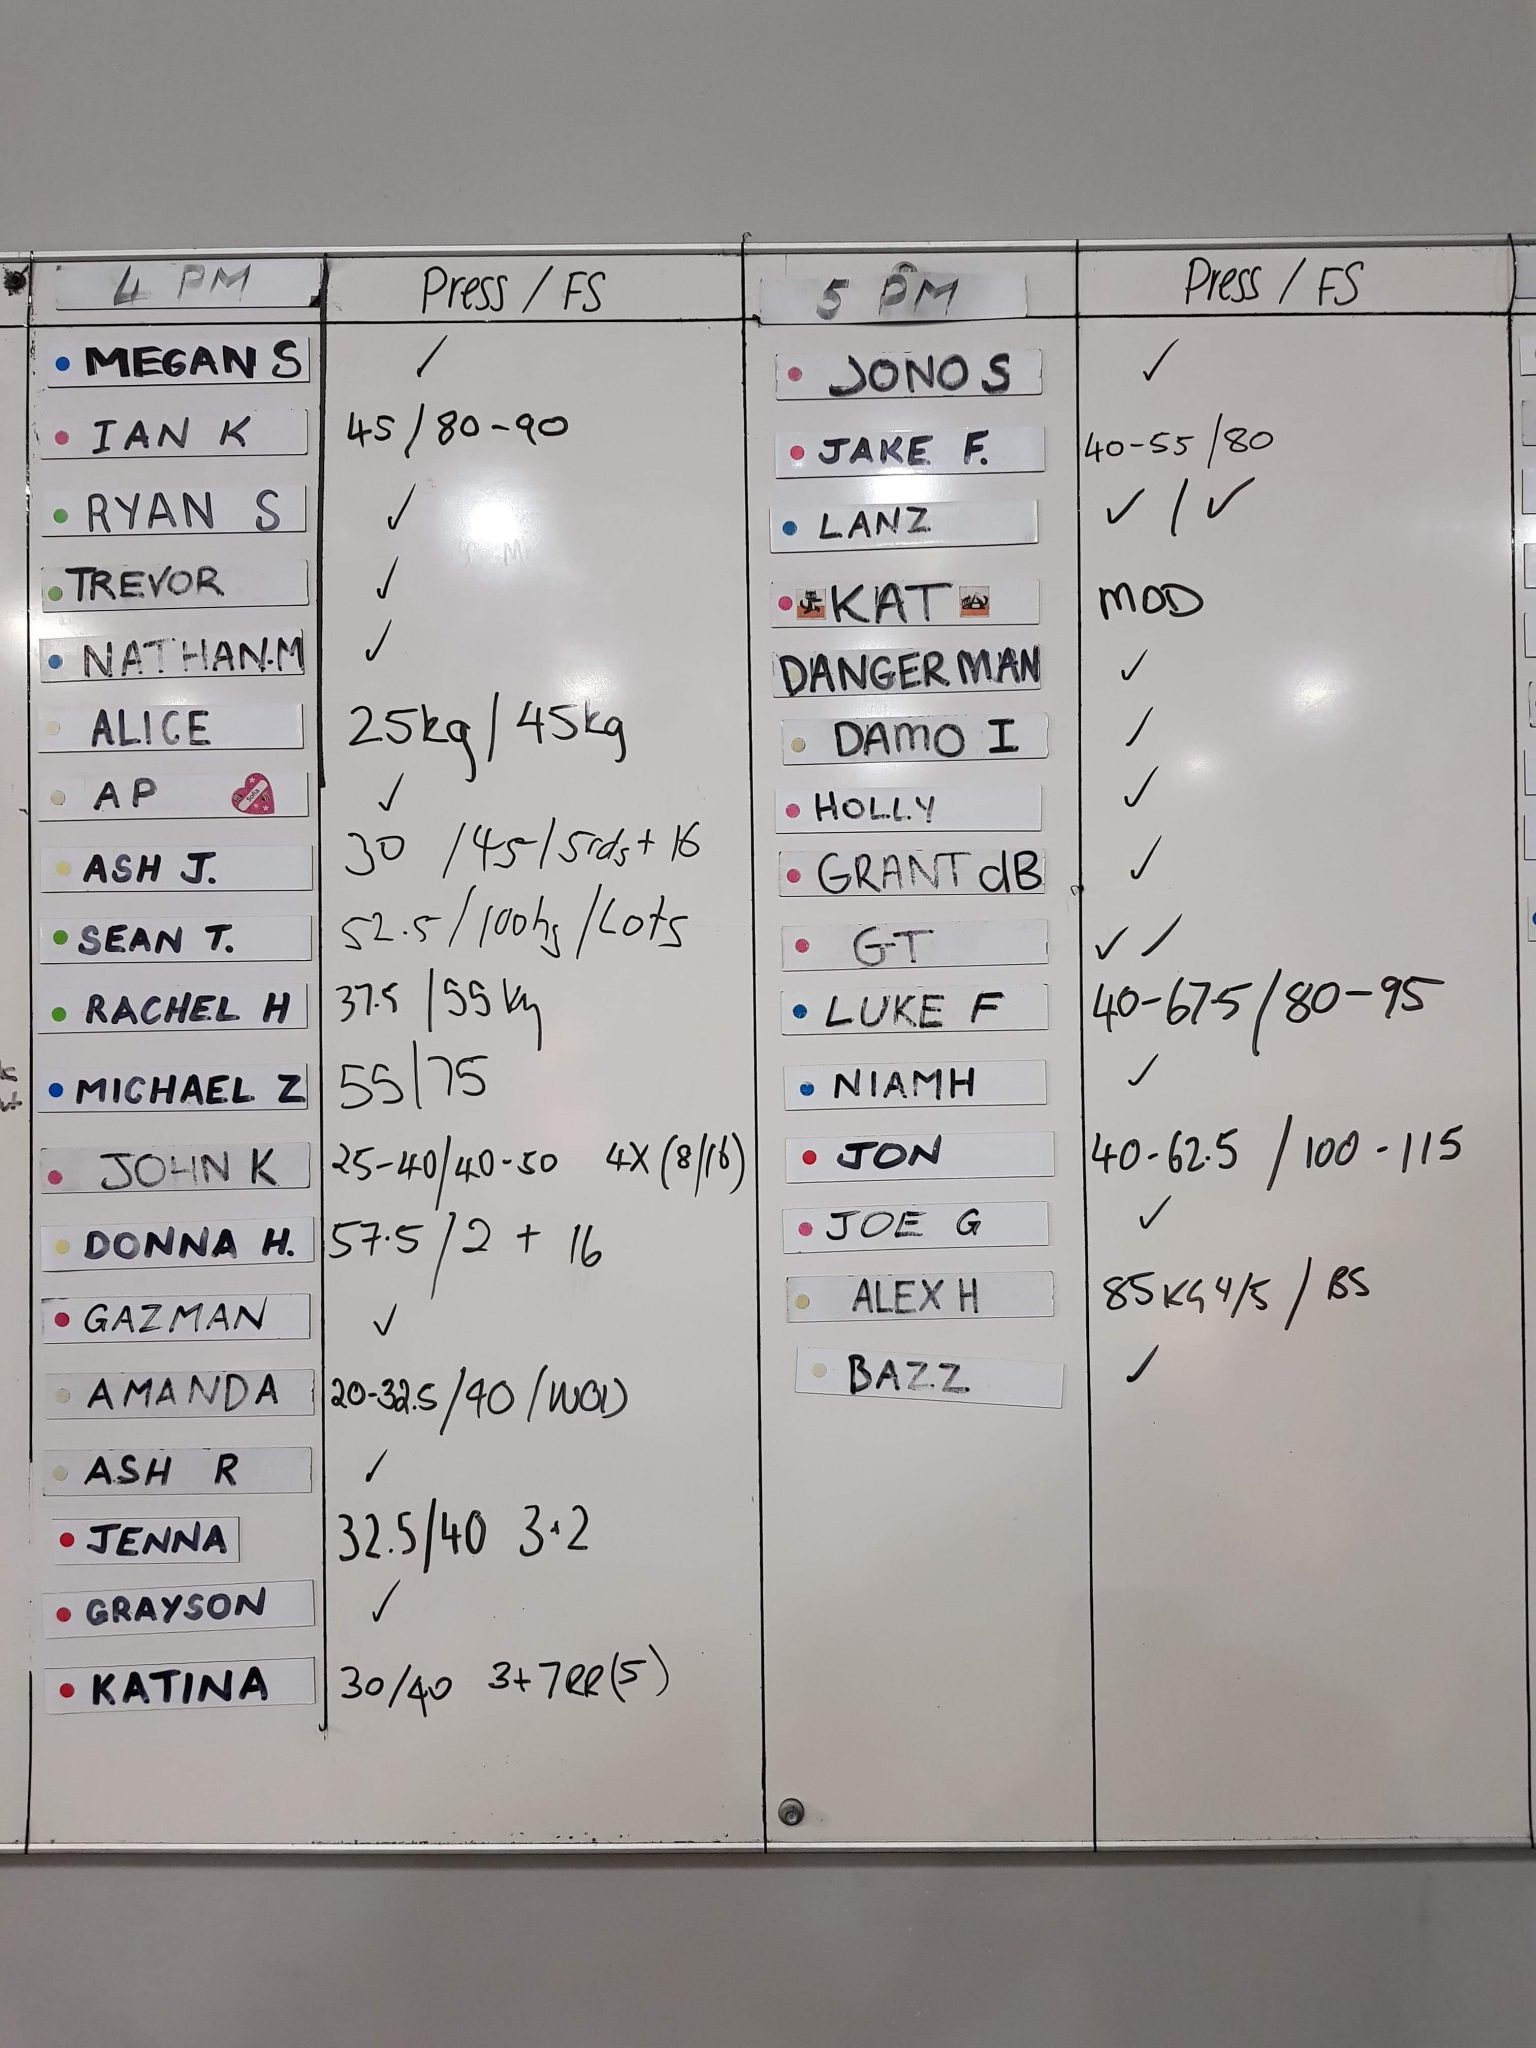 4 PM Press / FS
MEGAN S ✓
IAN K 45/80-90
RYAN S ✓
TREVOR ✓
NATHAN.M ✓
ALICE 25kg/45kg
AP ✓
ASH J. 30 /45/5rds+ 16
SEAN T. 52.5/100kg/Lots
RACHEL H 37.5/55kg
MICHAEL Z 55/75
JOHN K 25-40/40-50 4X(8/16)
DONNA H. 57.5/2 + 16
GAZMAN ✓
AMANDA 20-32.5/40/WOD
ASH R ✓
JENNA 32.5/40 3+2
GRAYSON ✓
KATINA 30/40 3+7RR(5)
5 PM Press / FS
JONO S ✓
JAKE F. 40-55/80
LANZ ✓/✓
KAT MOD
DANGERMAN ✓
DAMO I ✓
HOLLY ✓
GRANT dB ✓
GT ✓✓
LUKE F 40-67.5/80-95
NIAMH ✓
JON 40-62.5 /100-115
JOE G ✓
ALEX H 85KG 4/5 / BS
BAZZ ✓